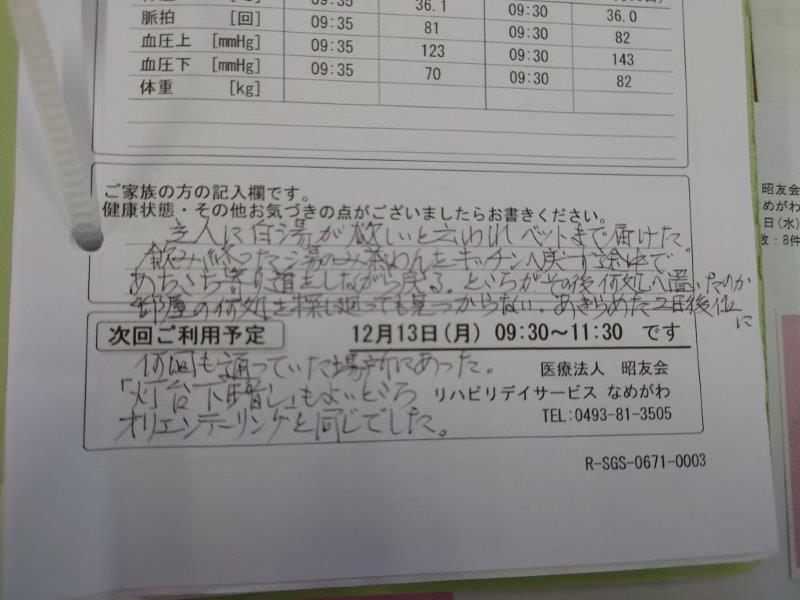 09:35 36.1 09:30 36.0
脈拍 [回] 09:35 81 09:30 82
血圧上 [mmHg] 09:35 123 09:30 143
血圧下 [mmHg] 09:35 70 09:30 82
体重 [kg]
ご家族の方の記入欄です。
健康状態・その他お気づきの点がございましたらお書きください。
主人に白湯が欲しいと云われベットまで届けた。
飲み終った湯のみ茶わんをキッチンへ戻す途中で
あちこち寄り道をしながら戻る。ところがその後何処へ置いたのか
部屋の何処を探し廻っても見つからない。あきらめた2日後位に
次回ご利用予定 12月13日(月) 09:30~11:30 です
何回も通っていた場所にあった。
医療法人 昭友会
「灯台下暗し」もよいところ
リハビリデイサービス なめがわ
オリエンテーリングと同じでした。
TEL:0493-81-3505
R-SGS-0671-0003
昭友会
なめがわ
日(水)
数:8件